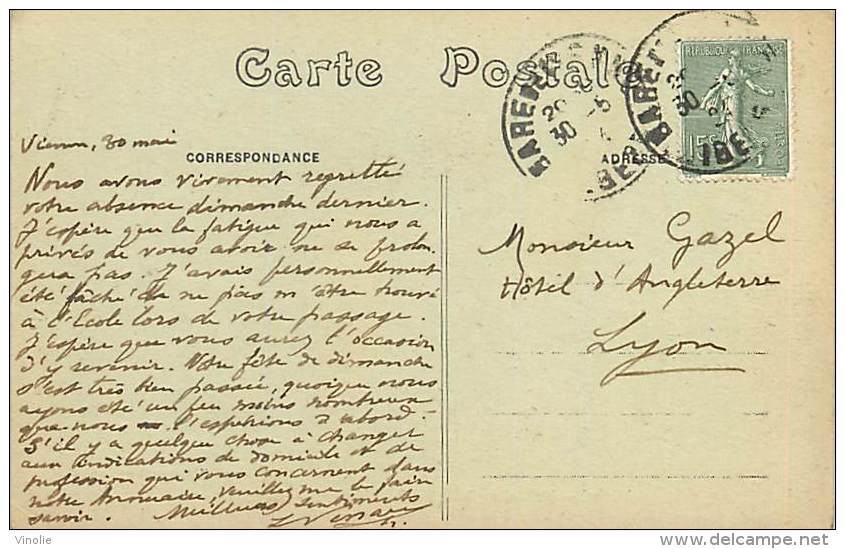 Carte Postale
CORRESPONDANCE
ADRESSE
REPUBLIQUE FRANÇAISE
15c
30 mai
Nous avons vivement regretté
votre absence dimanche dernier.
J'espère que la fatigue qui nous a
privés de vous avoir ne se prolon
gera pas. J'avais personnellement
été fâché de ne pas m'être trouvé
à l'Ecole lors de votre passage.
J'espère que vous aurez l'occasion
d'y revenir. Notre fête de dimanche
s'est très bien passée, quoique nous
ayons été un peu moins nombreux
que nous l'espérions d'abord.
S'il y a quelque chose à changer
aux indications de domicile et de
profession qui vous concernent dans
notre Annuaire, veuillez me le faire
savoir. Meilleurs sentiments
Monsieur Gazel
Hôtel d'Angleterre
Lyon
Vinolie
www.delcampe.net